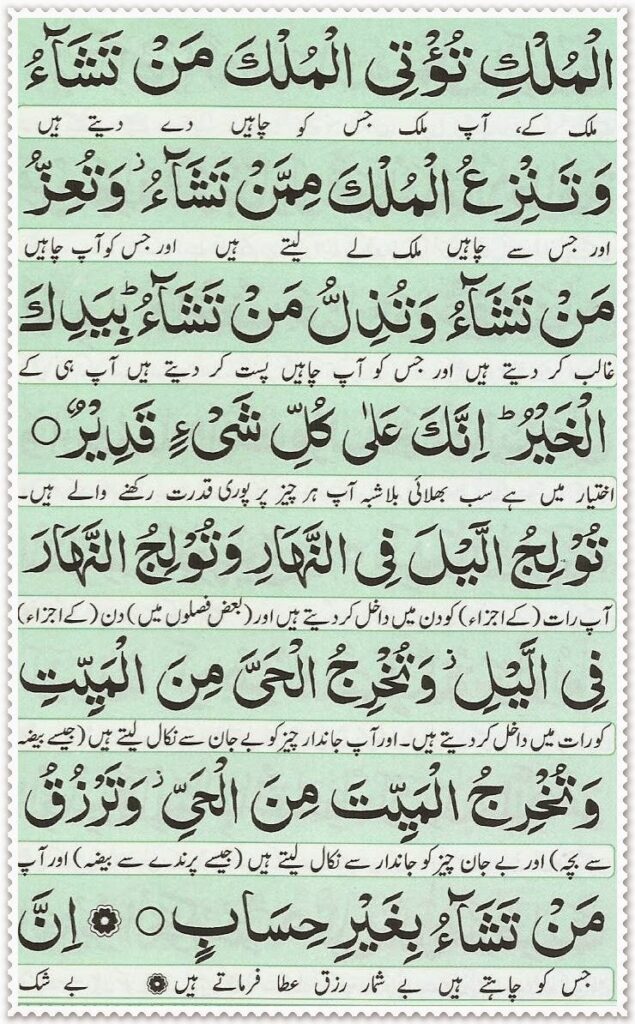 الْمُلْكِ تُؤْتِی الْمُلْكَ مَنْ تَشَآءُ
ملک کے، آپ ملک جس کو چاہیں دے دیتے ہیں
وَ تَنْزِعُ الْمُلْكَ مِمَّنْ تَشَآءُ ۫ وَتُعِزُّ
اور جس سے چاہیں ملک لے لیتے ہیں اور جس کو آپ چاہیں
مَنْ تَشَآءُ وَتُذِلُّ مَنْ تَشَآءُ ؕ بِیَدِكَ
غالب کر دیتے ہیں اور جس کو آپ چاہیں پست کر دیتے ہیں آپ ہی کے
الْخَیْرُ ؕ اِنَّكَ عَلٰی كُلِّ شَیْءٍ قَدِیْرٌ ○
اختیار میں ہے سب بھلائی بلاشبہ آپ ہر چیز پر پوری قدرت رکھنے والے ہیں۔
تُوْلِجُ الَّیْلَ فِی النَّهَارِ وَتُوْلِجُ النَّهَارَ
آپ رات (کے اجزاء) کو دن میں داخل کر دیتے ہیں اور (بعض فصلوں میں) دن (کے اجزاء)
فِی الَّیْلِ ۫ وَتُخْرِجُ الْحَیَّ مِنَ الْمَیِّتِ
کو رات میں داخل کر دیتے ہیں۔ اور آپ جاندار چیز کو بے جان سے نکال لیتے ہیں (جیسے بیضہ
وَتُخْرِجُ الْمَیِّتَ مِنَ الْحَیِّ ۫ وَتَرْزُقُ
سے بچہ) اور بے جان چیز کو جاندار سے نکال لیتے ہیں (جیسے پرندے سے بیضہ) اور آپ
مَنْ تَشَآءُ بِغَیْرِ حِسَابٍ ○ اِنَّ
جس کو چاہتے ہیں بے شمار رزق عطا فرماتے ہیں بے شک